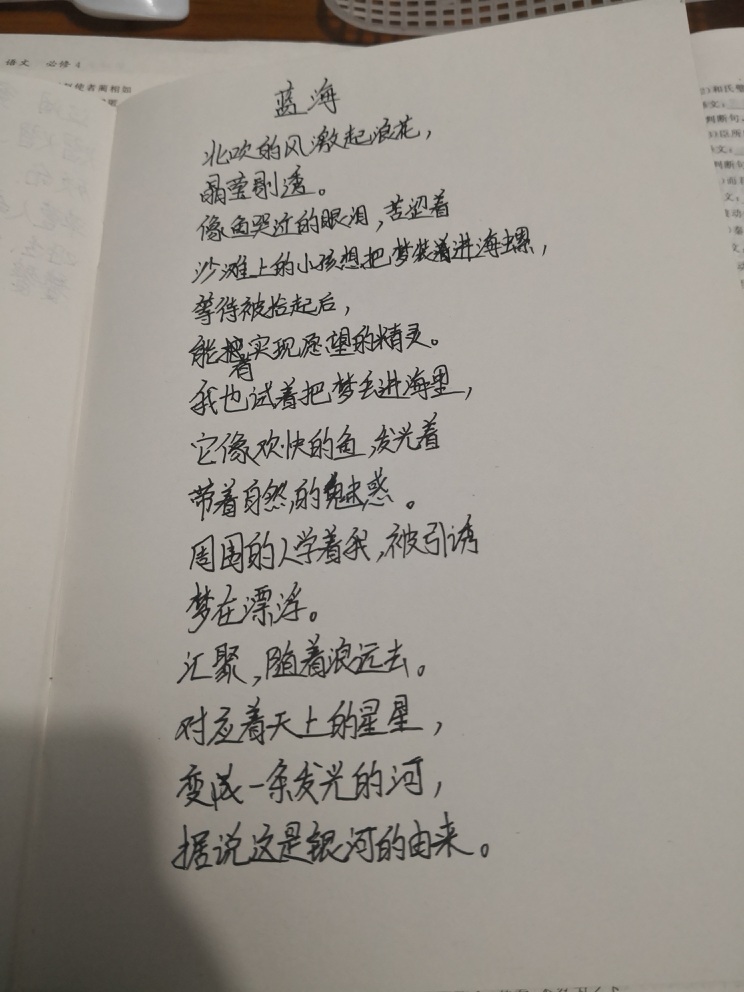 语文 必修4
使者蔺相如
蓝海
北吹的风激起浪花，
晶莹剔透。
像鱼哭过的眼泪，苦涩着
沙滩上的小孩想把梦装着进海螺，
等待被拾起后，
能着实现愿望的精灵。
我也试着把梦丢进海里，
它像欢快的鱼，发光着
带着自然的魅惑。
周围的人学着我，被引诱
梦在漂浮。
汇聚，随着浪远去。
对应着天上的星星，
变成一条发光的河，
据说这是银河的由来。
和氏璧
判断句